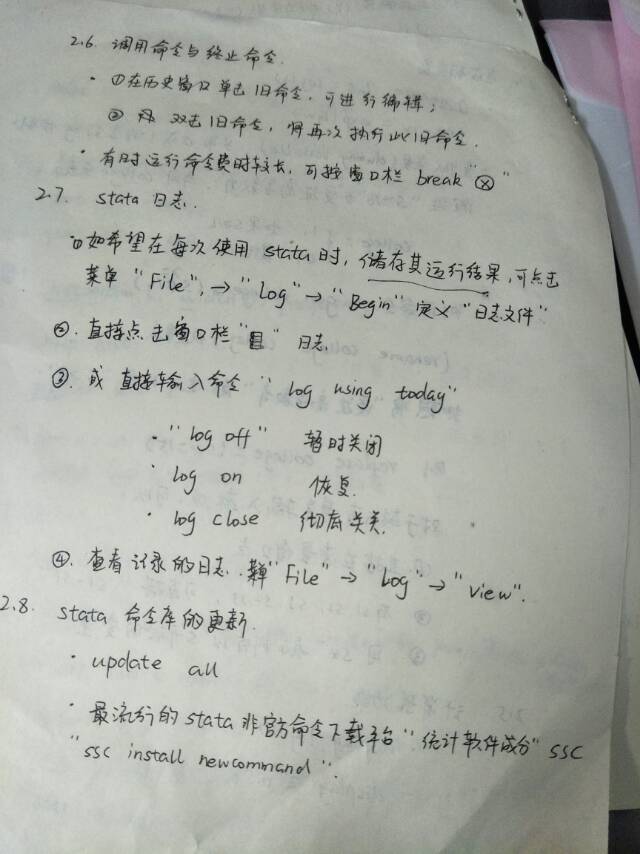 2.6. 调用命令与终止命令.
· ①在历史窗口单击旧命令, 可进行编辑;
② 双击旧命令, 将再次执行此旧命令.
· 有时运行命令费时较长, 可按窗口栏 break "ⓧ"
2.7. stata 日志.
①如希望在每次使用 stata 时, 储存其运行结果, 可点击
菜单 "File", → "Log" → "Begin" 定义 "日志文件"
②. 直接点击窗口栏 "目" 日志
③. 或直接输入命令 " log using today"
· "log off" 暂时关闭
· log on 恢复.
· log close 彻底关关.
④. 查看记录的日志. 菜单 "File" → "Log" → "view".
2.8. stata 命令库的更新.
· update all
· 最流行的 stata 非官方命令下载平台 "统计软件成分" SSC
"ssc install newcommand".